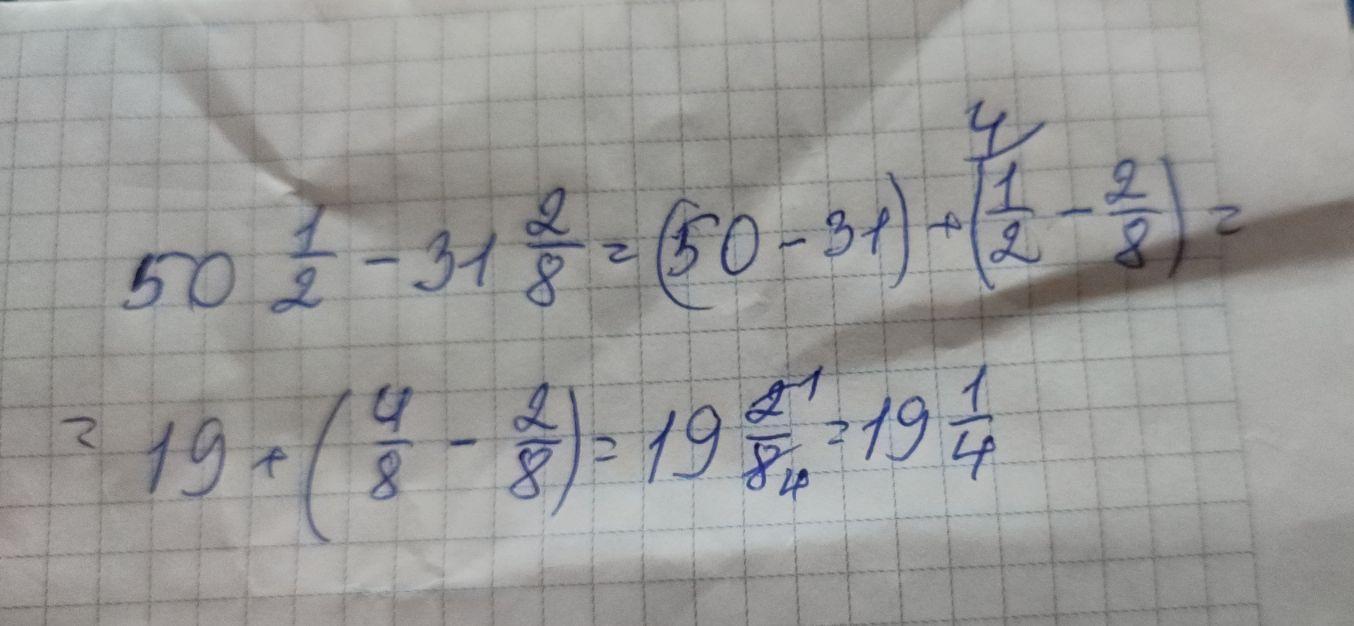 50 1/2 - 31 2/8 = (50 - 31) + (4/ 1/2 - 2/8) =
= 19 + (4/8 - 2/8) = 19 2 1/8 4 = 19 1/4